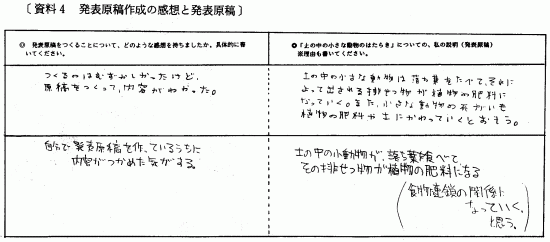 〔資料4 発表原稿作成の感想と発表原稿〕
◎ 発表原稿をつくることについて、どのような感想を持ちましたか。具体的に書
いてください。
◎「土の中の小さな動物のはたらき」についての、私の説明（発表原稿）
※理由も書いてください。
つくるのはむずかしかったけど、
原稿をつくって、内容がわかった。
土の中の小さな動物は落ち葉をたべて、それに
よって出される排せつ物が植物の肥料に
なっていく。また、小さな動物の死がいも
植物の肥料や土にかわっていくとおもう。
自分で発表原稿を作っているうちに
内容がつかめた気がする。
土の中の小動物が、落ち葉を食べて
その排せつ物が植物の肥料になる
（食物連鎖の関係に
なっていく。
と思う。